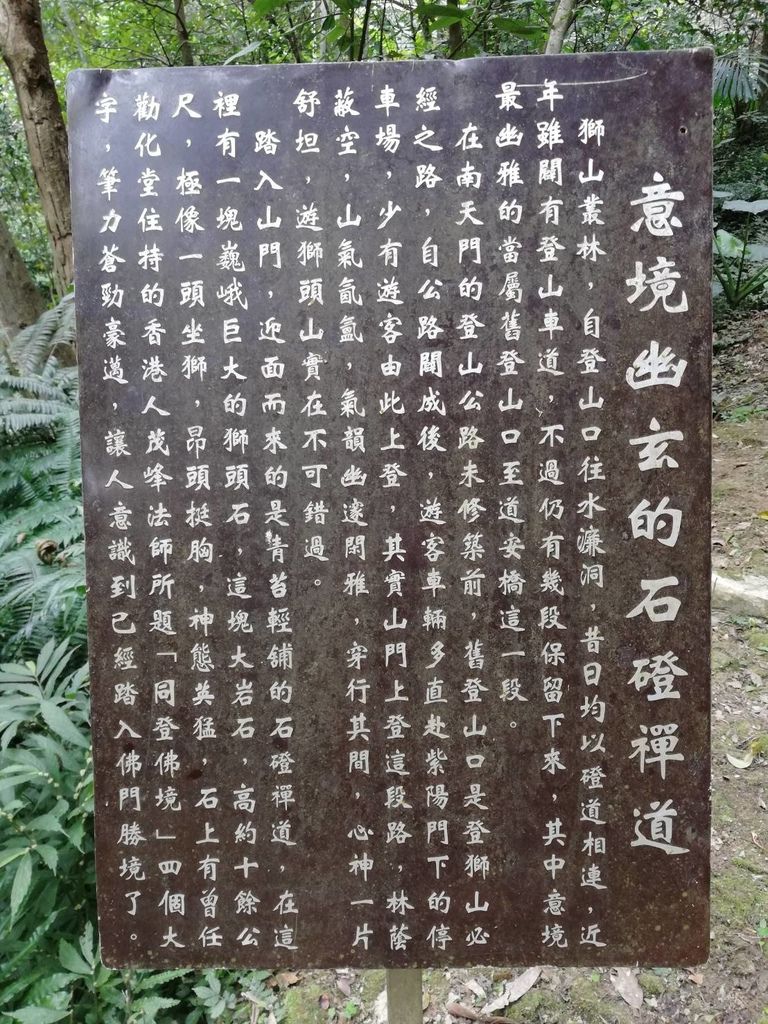 意境幽玄的石磴禪道
獅山叢林，自登山口往水濂洞，昔日均以磴道相連，近
年雖闢有登山車道，不過仍有幾段保留下來，其中意境
最幽雅的當屬舊登山口至道安橋這一段。
在南天門的登山公路未修築前，舊登山口是登獅山必
經之路，自公路闢成後，遊客車輛多直赴紫陽門下的停
車場，少有遊客由此上登，其實山門上登這段路，林蔭
蔽空，山氣氤氳，氣韻幽邃閑雅，穿行其間，心神一片
舒坦，遊獅頭山實在不可錯過。
踏入山門，迎面而來的是青苔輕舖的石磴禪道，在這
裡有一塊巍峨巨大的獅頭石，這塊大岩石，高約十餘公
尺，極像一頭坐獅，昂頭挺胸，神態英猛，石上有曾任
勸化堂住持的香港人茂峰法師所題「同登佛境」四個大
字，筆力蒼勁豪邁，讓人意識到已經踏入佛門勝境了。